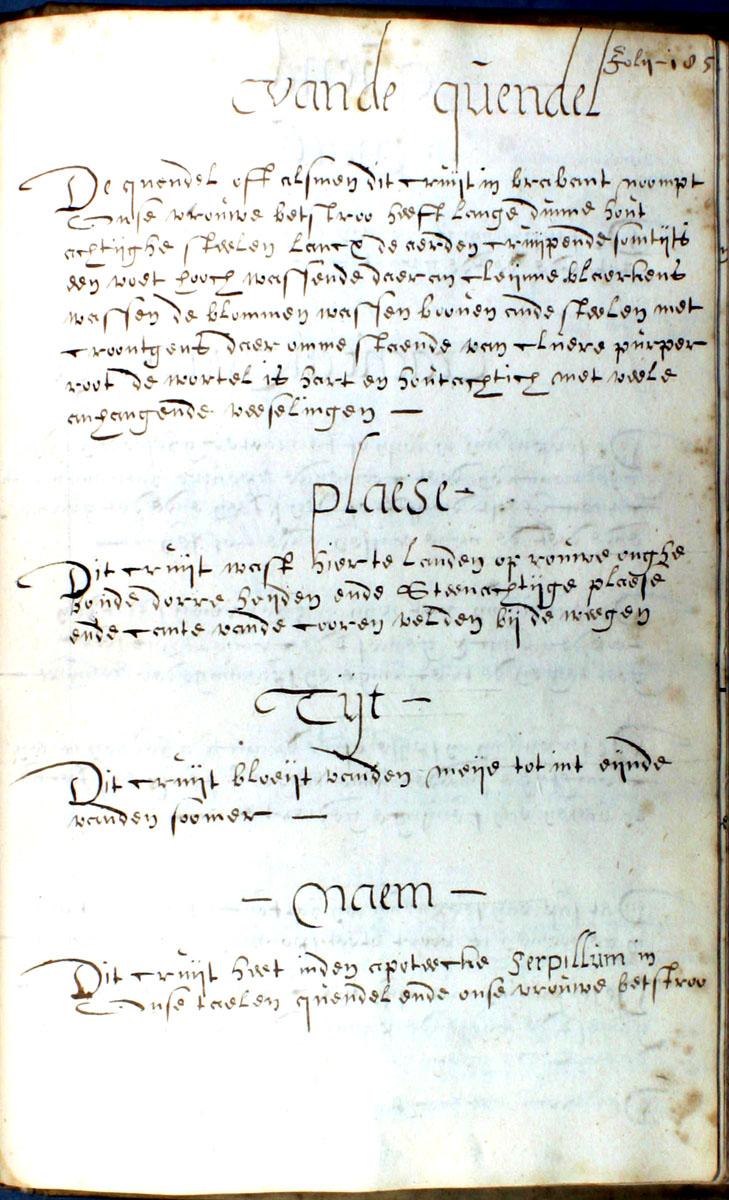 Folii 185
Vande quendel
De quendel off alsmen dit cruijt in brabant noompt
Onse vrouwe betstroo heeft lange dunne hout
achtijghe steelen lancx de aerden cruijpende somtijts
een voet hooch wassende daer an cleijnne blaerkens
wassen de blommen wassen booven ande steelen met
croontgens daer omme staende van cluere purper
root de wortel is hart en houtachtich met veele
anhangende veeselingen —
plaese -
Dit cruijt wast hier te landen op rouwe onghe
boude dorre heijden ende Steenachtijge plaese
ende cante vande cooren velden bij de wegen
Tijt -
Dit cruijt bloeijt vanden meije tot int eijnde
vanden soomer —
- Naem -
Dit cruijt heet inden apoteecke Serpillum in
Onse taelen quendel ende onse vrouwe betstroo